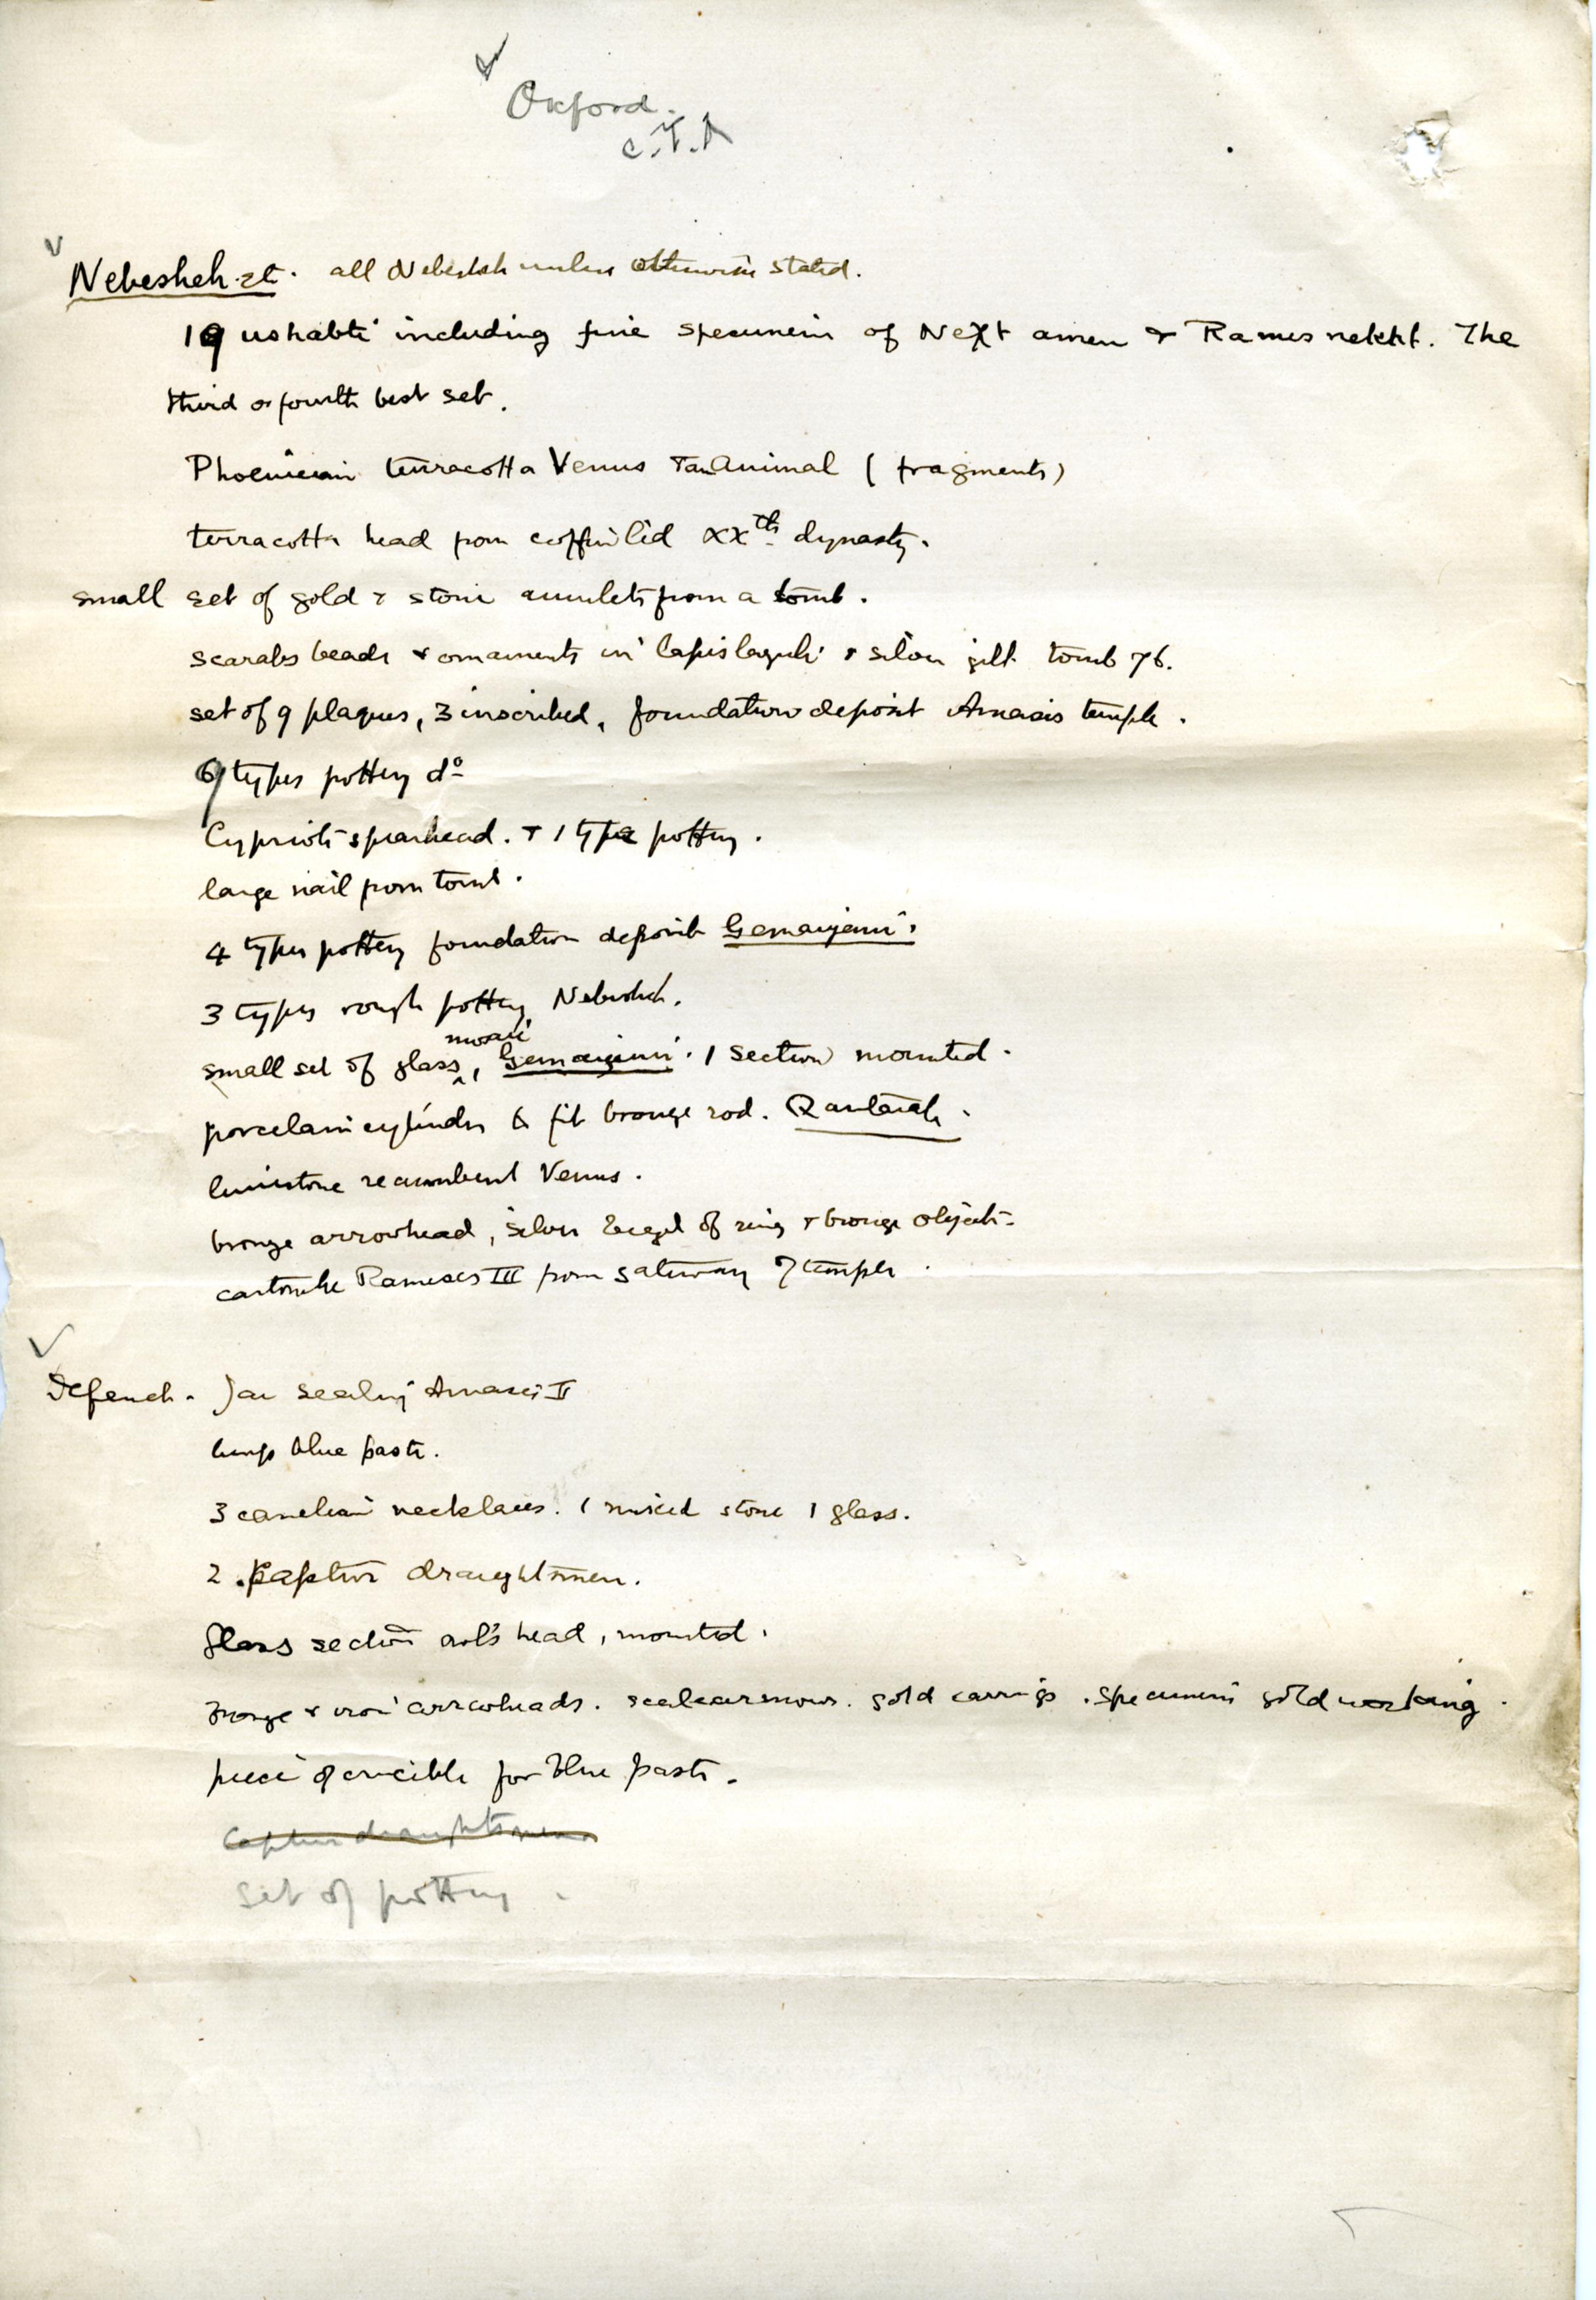 ✓
Oxford.
C.T.A
✓
Nebesheh etc. all Nebesheh unless otherwise stated.
19 ushabti including fine specimens of Next amen & Rames nekht. The
third or fourth best set.
Phoenician terracotta Venus & an animal (fragments)
terracotta head from coffin lid XXth dynasty.
small set of gold & stone amulets from a tomb.
scarabs beads & ornaments in lapis lazuli & silver gilt tomb 76.
set of 9 plaques, 3 inscribed, foundation deposit Amasis temple.
6 types pottery do
Cypriote spearhead. & 1 type pottery.
large nail from tomb.
4 types pottery foundation deposit Gemaiyemi.
3 types rough pottery Nebesheh.
mosaic
small set of glass ‸, Gemaiyemi. 1 section mounted.
porcelain cylinder to fit bronze rod. Qantarah.
limestone recumbent Venus.
bronze arrowhead, silver bezel of ring & bronze objects
cartouche Rameses III from gateway of temple.
✓
Defeneh. Jar sealing Amasis II
lump blue paste.
3 carnelian necklaces. 1 mixed stone 1 glass.
2 captive draughtsmen.
glass section owl's head, mounted.
bronze & iron arrowheads. scale armour. gold earrings. specimens gold working.
piece of crucible for blue paste.
Captive draughtsmen
set of pottery.